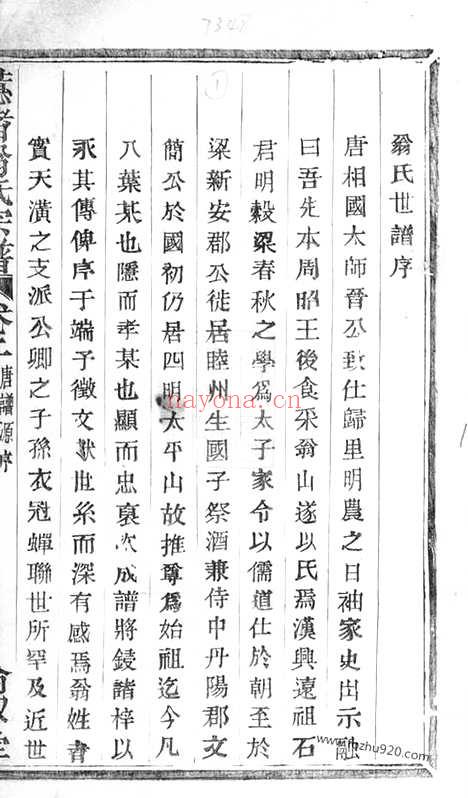 7347
1
翁氏世譜序
唐相國太師晉公致仕歸里明農之日袖家史出示融
曰吾先本周昭王後食采翁山遂以氏焉漢興遠祖石
君明榖梁春秋之學爲太子家令以儒道仕於朝至於
梁新安郡公徙居睦州生國子祭酒兼侍中丹陽郡文
簡公於國初仍居四明太平山故推尊爲始祖迄今凡
八葉某也隱而孝某也顯而忠裒次成譜將鋟諸梓以
永其傳俾序于端予徵文獻世系而深有感焉翁姓書
實天潢之支派公卿之子孫衣冠蟬聯世所罕及近世
慈谿翁氏宗譜
卷三
唐譜源序
nayona.cn
jiazhu920.com